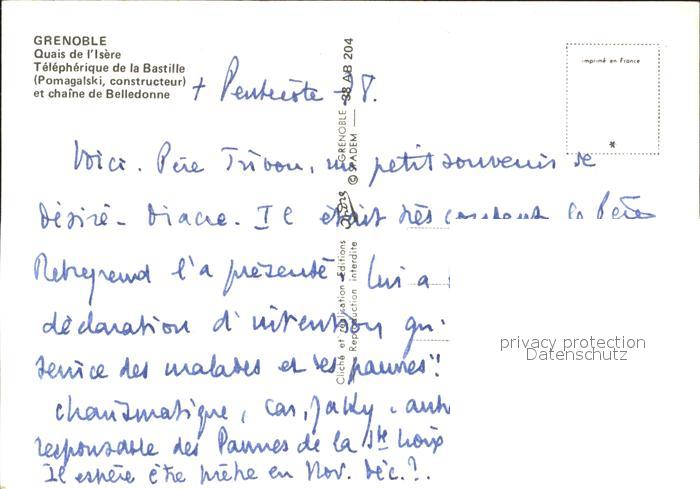 GRENOBLE
Quais de l'Isère
Téléphérique de la Bastille
(Pomagalski, constructeur)
et chaîne de Belledonne
+ Pentecôte - 78.
imprimé en France
*
Voici. Père Trivou, un petit souvenir de
Désiré - Diacre. Il était très content le Père
l'a présenté - lui a
déclaration d'intention qu'
service des malades et des pauvres"!
charismatique, car,
responsable des Pauvres de la Ste Croix
Il espère être prêtre en Nov. Déc.?.
Cliché et réalisation Editions
Reproduction interdite
GRENOBLE — 38 AB 204
© SPADEM
privacy protection
Datenschutz